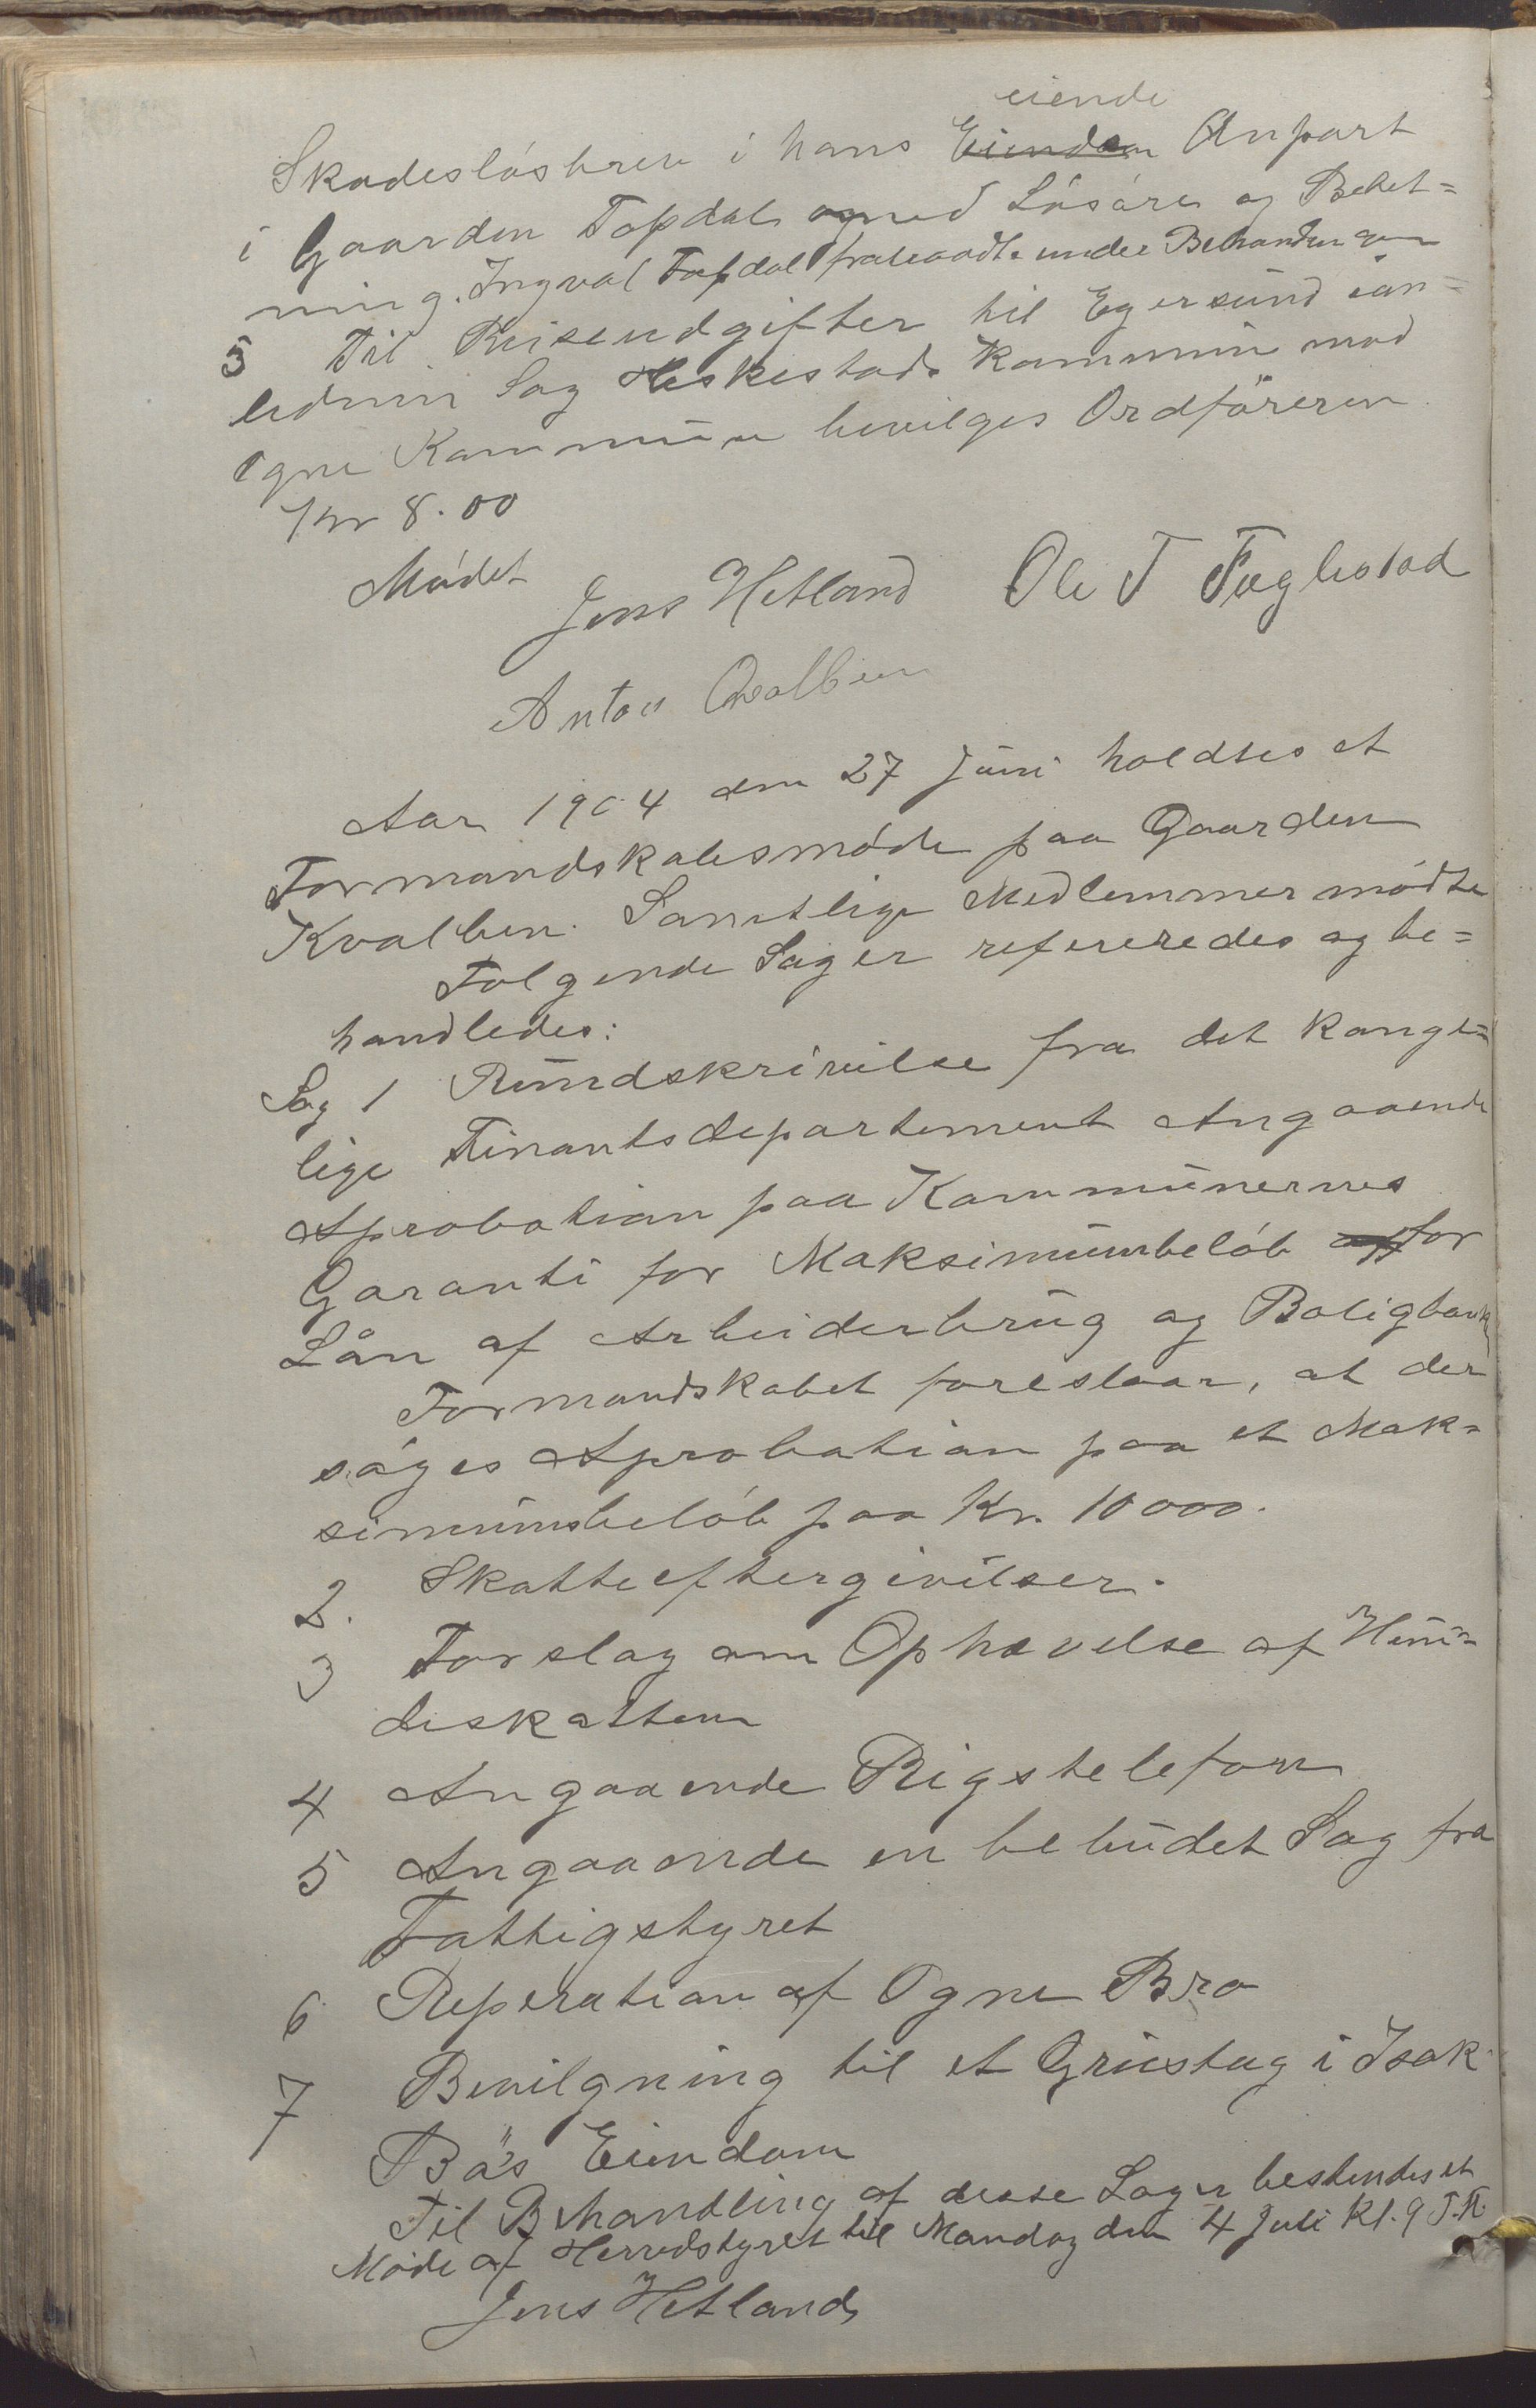 eiende
Skadesløsbrev i hans Eiendom Anpart
i Gaarden Topdal med Løsøre og Beket=
ning. Ingval Topdal fratraadte under Behandlingen
5 Til Reiseudgifter til Egersund ian=
ledning Sag Heskestads Kommune mod
Ogne Kommune bevilges Ordføreren
Kr 8.00
Mødet
Jens Hetland Ole T Fuglestad
Anton Qvalben
Aar 1904 den 27 Juni holdtes et
Formandskabsmøde paa Gaarden
Kvalben. Samtlige Medlemmer mødte
Følgende Sager refereredes og be=
handledes:
Sag 1 Rundskrivelse fra det konge=
lige Finantsdepartement Angaaende
Aprobation paa Kommunernes
Garanti for Maksimumbeløb af for
Lån af Arbeiderbrug og Boligbank
Formandskabet foreslaar, at der
søges Aprobation paa et Mak=
simumsbeløb paa Kr. 10000.
2. Skatteeftergivelser.
3 Forslag om Ophævelse af Hun=
deskatten
4 Angaaende Rigstelefon
5 Angaaende en bebudet Sag fra
Fattigstyret
6 Reperation af Ogne Bro
7 Bevilgning til et Grustag i Isak
Bø's Eiendom
Til Behandling af disse Sager bestemdes et
Møde af Herredstyret til Mandag den 4 Juli Kl. 9 F.M.
Jens Hetland